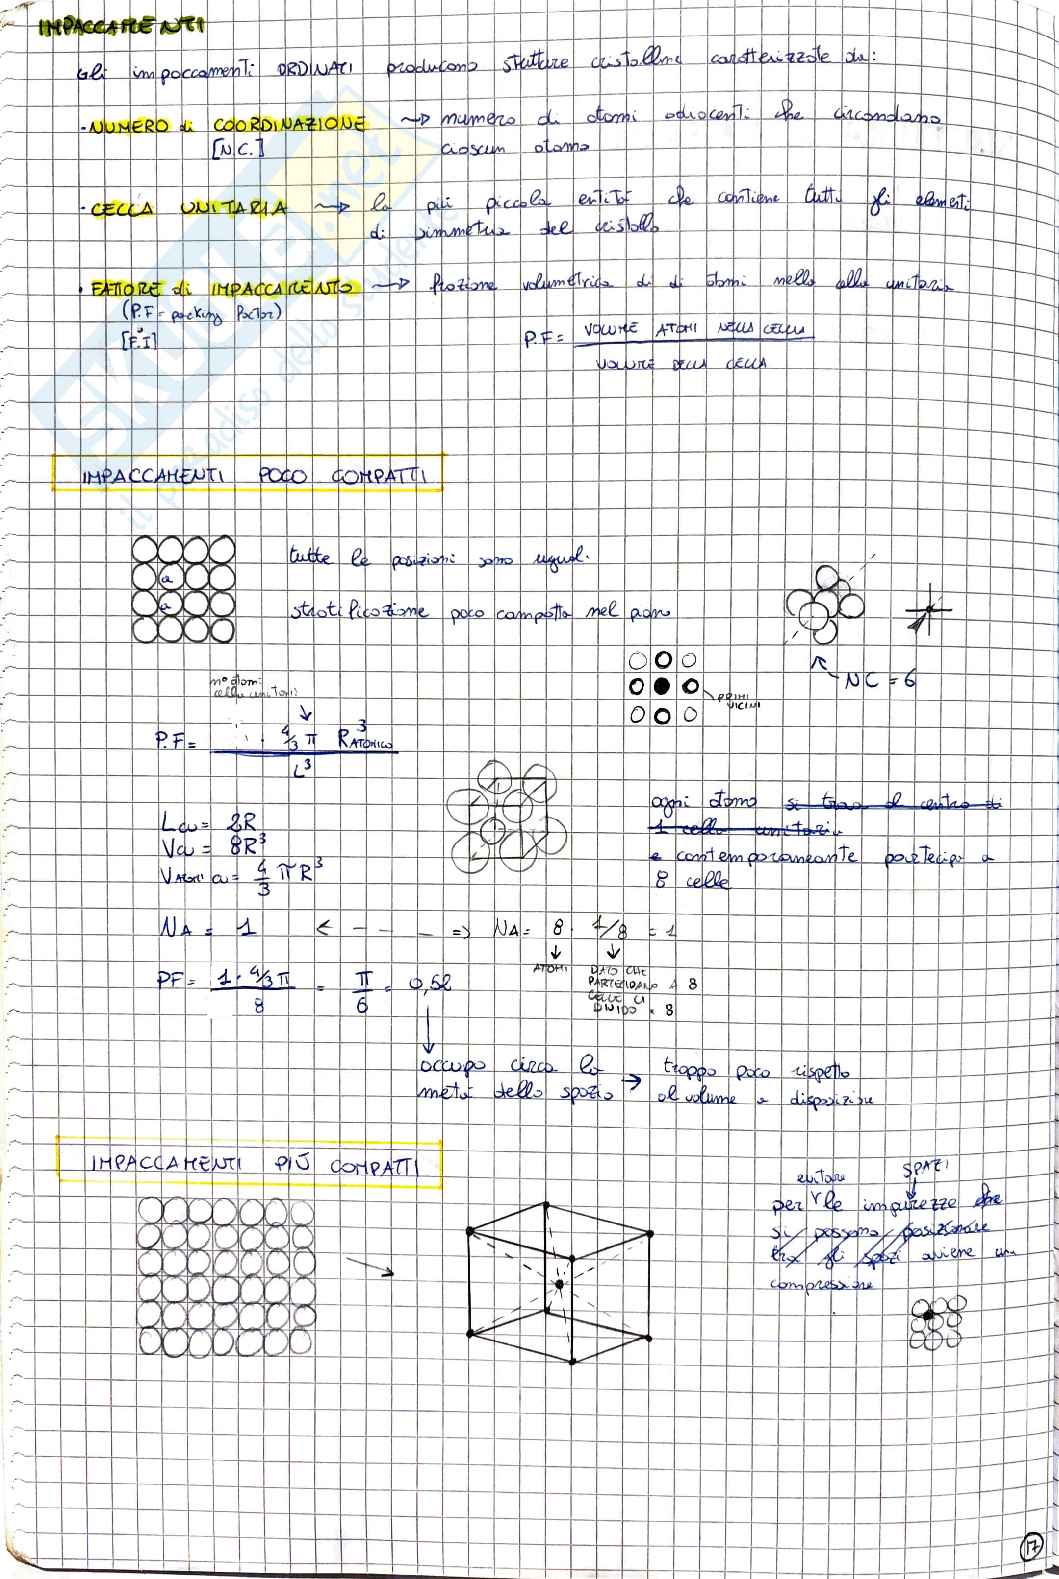 IMPACCAMENTI
Gli impaccamenti ORDINATI producono strutture cristalline caratterizzate da:
· NUMERO di COORDINAZIONE ~> numero di atomi adiacenti che circondano
[N.C.] ciascun atomo
· CELLA UNITARIA ~> la più piccola entità che contiene tutti gli elementi
di simmetria del cristallo
· FATTORE di IMPACCAMENTO ~> frazione volumetrica di di atomi nella cella unitaria
(P.F = packing factor)
[F.I]
P.F = VOLUME ATOMI NELLA CELLA
VOLUME DELLA CELLA
IMPACCAMENTI POCO COMPATTI
tutte le posizioni sono uguali
a
a
stratificazione poco compatta nel piano
NC = 6
PRIMI
VICINI
n° atomi
cella unitaria
P.F = · 4/3 π R³ATOMICO
L³
La = 2R
Va = 8R³
VATOMI a = 4/3 π R³
ogni atomo si trova al centro di
1 cella unitaria
e contemporaneante partecipa a
8 celle
NA = 1 <- - - => NA = 8 · 1/8 = 1
ATOMI
DATO CHE
PARTECIPANO A 8
CELLE LI
DIVIDO x 8
PF = 1 · 4/3 π / 8 = π/6 = 0,52
occupo circa la
metà dello spazio → troppo poco rispetto
al volume a disposizione
IMPACCAMENTI PIÙ COMPATTI
evitare SPAZI
per le impurezze che
si possono posizionare
tra gli spazi avviene una
compressione
17
skuola.net
il paradiso dello studente